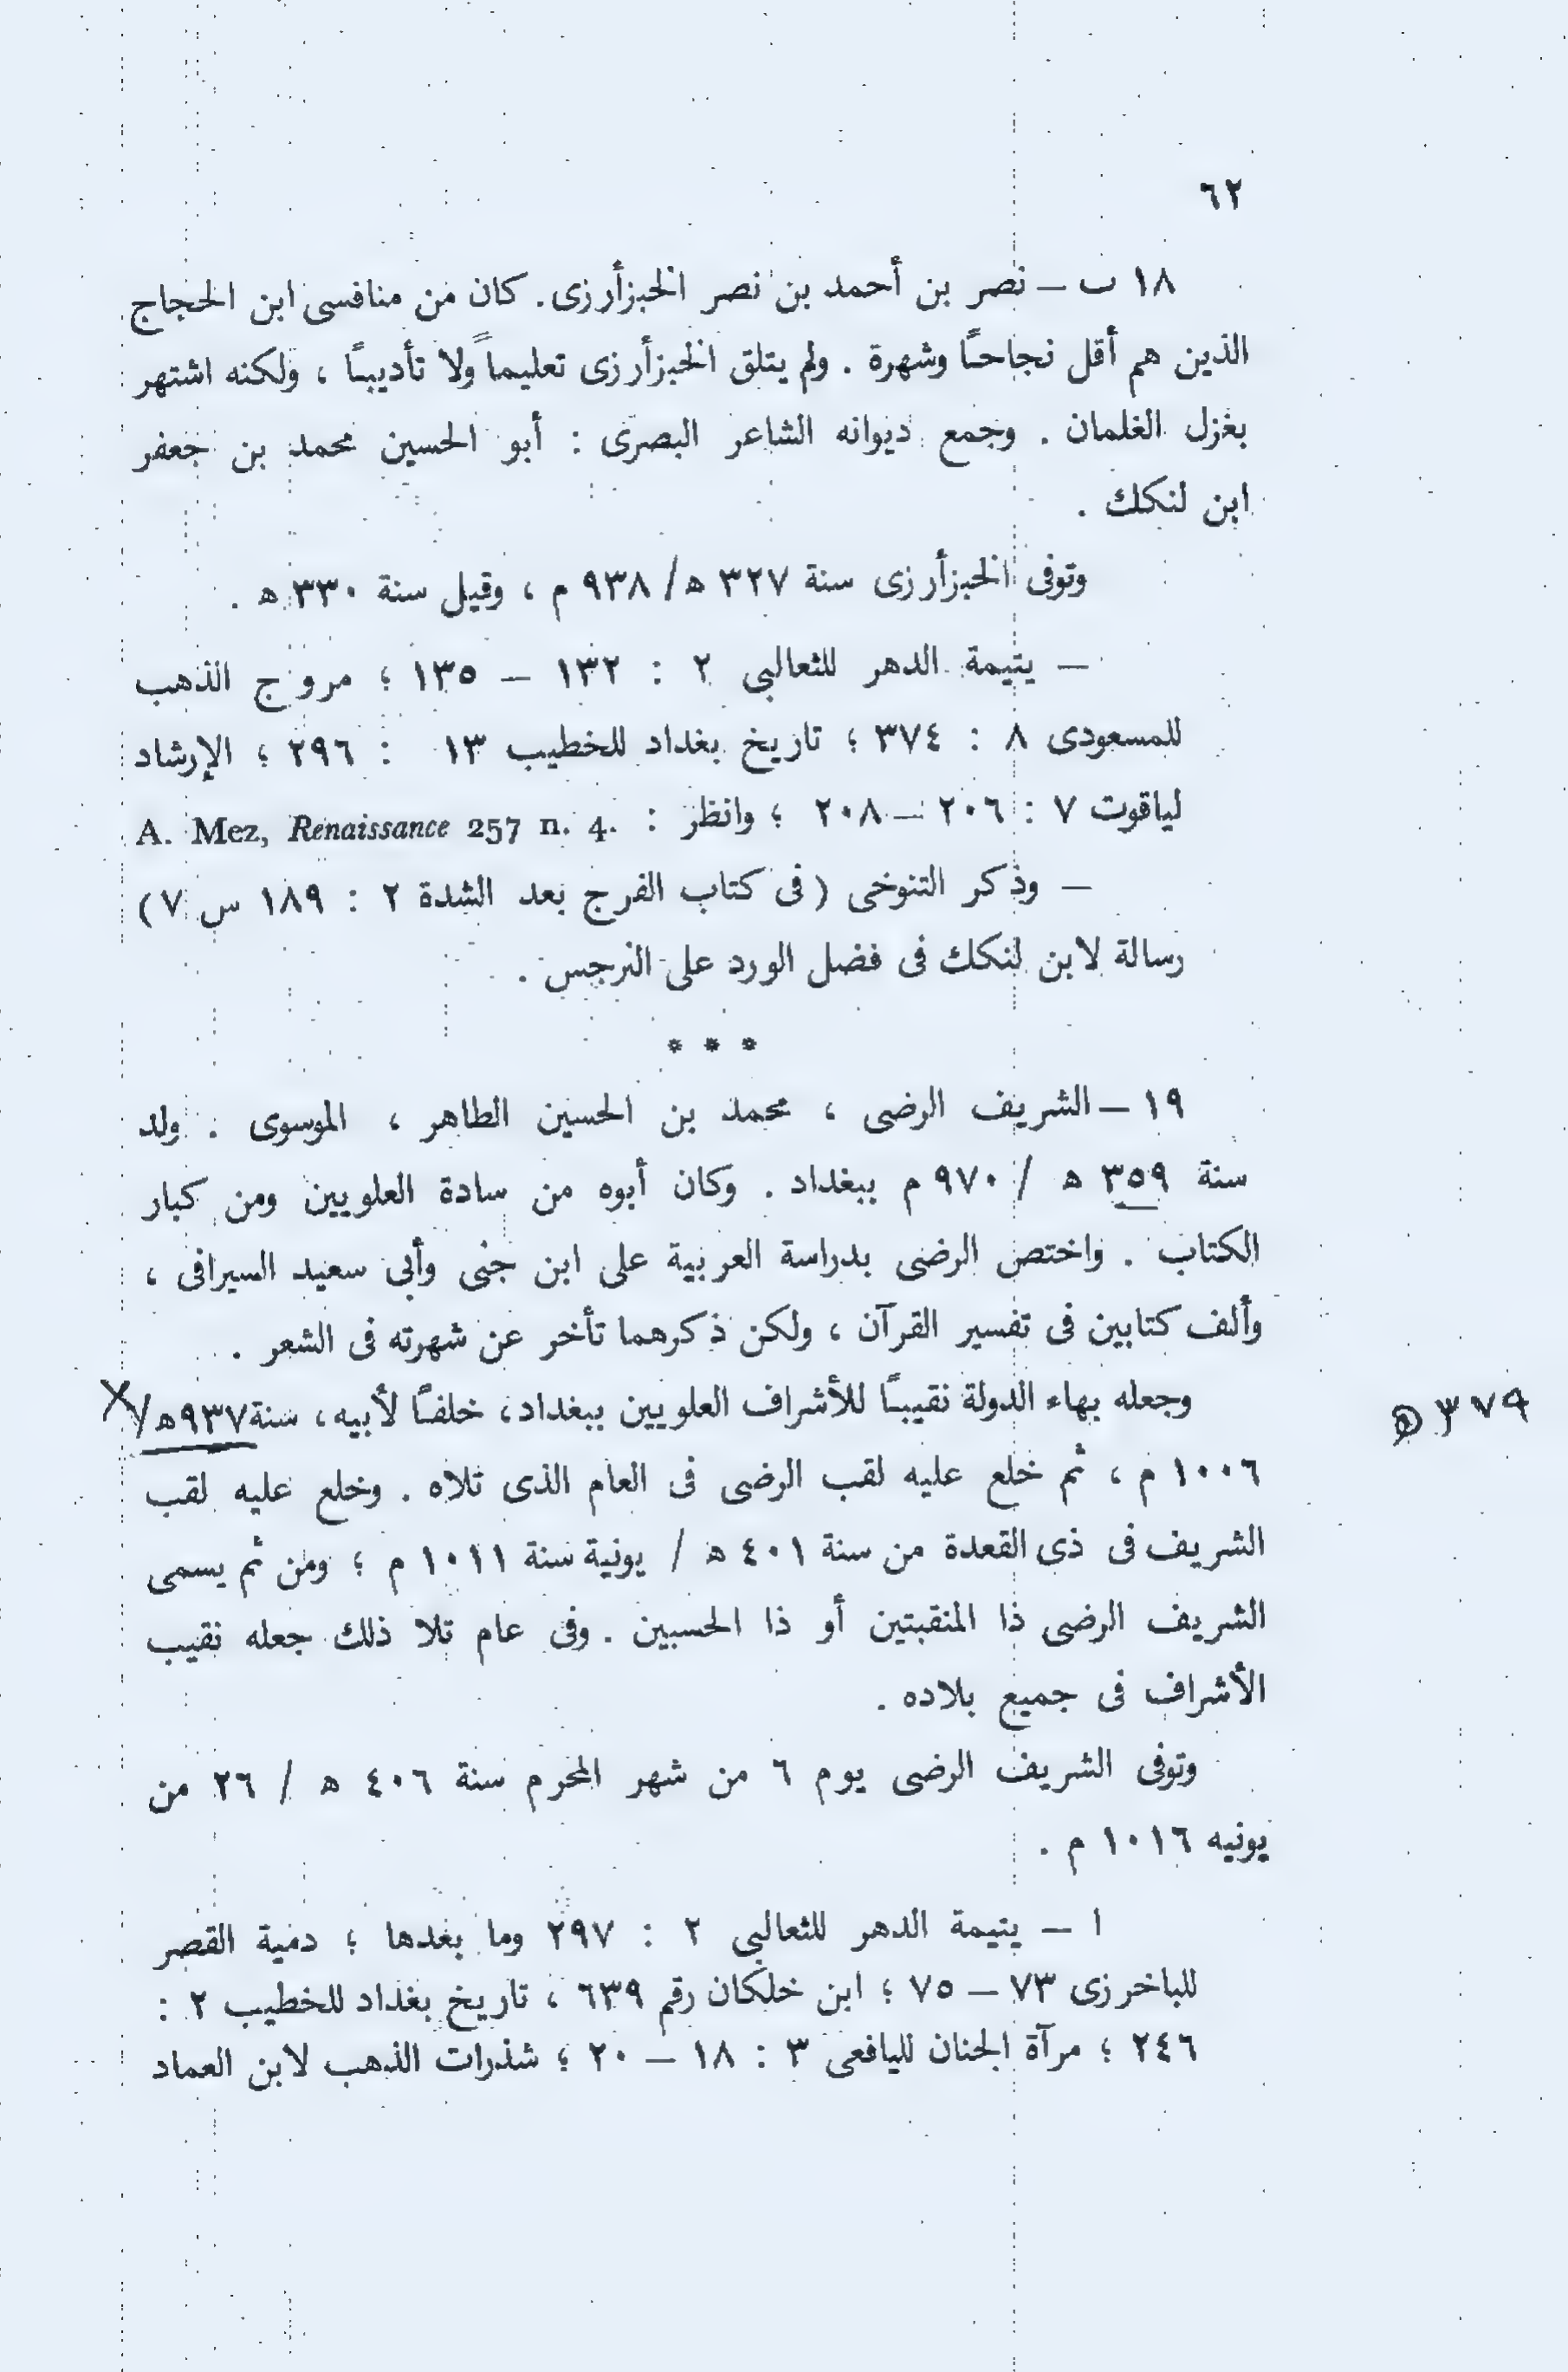 ٦٢
١٨ ب – نصر بن أحمد بن نصر الخبزأرزى. كان من منافسى ابن الحجاج
الذين هم أقل نجاحاً وشهرة . ولم يتلق الخبزأرزى تعليماً ولا تأديباً ، ولكنه اشتهر
بغزل الغلمان . وجمع ديوانه الشاعر البصرى : أبو الحسين محمد بن جعفر
ابن لنكك .
وتوفى الخبزأرزى سنة ٣٢٧ ه/ ٩٣٨ م ، وقيل سنة ٣٣٠ ه .
– يتيمة الدهر للثعالبى ٢ : ١٣٢ – ١٣٥ ؛ مروج الذهب
للمسعودى ٨ : ٣٧٤ ؛ تاريخ بغداد للخطيب ١٣ : ٢٩٦ ؛ الإرشاد
لياقوت ٧ : ٢٠٦ – ٢٠٨ ؛ وانظر : A. Mez, Renaissance 257 n. 4.
– وذكر التنوخى (فى كتاب الفرج بعد الشدة ٢ : ١٨٩ س ٧)
رسالة لابن لنكك فى فضل الورد على النرجس .
* * *
١٩ – الشريف الرضى ، محمد بن الحسين الطاهر ، الموسوى . ولد
سنة ٣٥٩ ه / ٩٧٠ م ببغداد . وكان أبوه من سادة العلويين ومن كبار
الكتاب . واختص الرضى بدراسة العربية على ابن جنى وأبى سعيد السيرافى ،
وألف كتابين فى تفسير القرآن ، ولكن ذكرهما تأخر عن شهرته فى الشعر .
وجعله بهاء الدولة نقيباً للأشراف العلويين ببغداد، خلفاً لأبيه، سنة ٩٣٧ه/ X
٣٧٩ ه
١٠٠٦ م ، ثم خلع عليه لقب الرضى فى العام الذى تلاه . وخلع عليه لقب
الشريف فى ذى القعدة من سنة ٤٠١ ه / يونية سنة ١٠١١ م ؛ ومن ثم يسمى
الشريف الرضى ذا المنقبتين أو ذا الحسبين . وفى عام تلا ذلك جعله نقيب
الأشراف فى جميع بلاده .
وتوفى الشريف الرضى يوم ٦ من شهر المحرم سنة ٤٠٦ ه / ٢٦ من
يونيه ١٠١٦ م .
ا – يتيمة الدهر للثعالبى ٢ : ٢٩٧ وما بعدها ؛ دمية القصر
للباخرزى ٧٣ – ٧٥ ؛ ابن خلكان رقم ٦٣٩ ، تاريخ بغداد للخطيب ٢ :
٢٤٦ ؛ مرآة الجنان لليافعى ٣ : ١٨ – ٢٠ ؛ شذرات الذهب لابن العماد